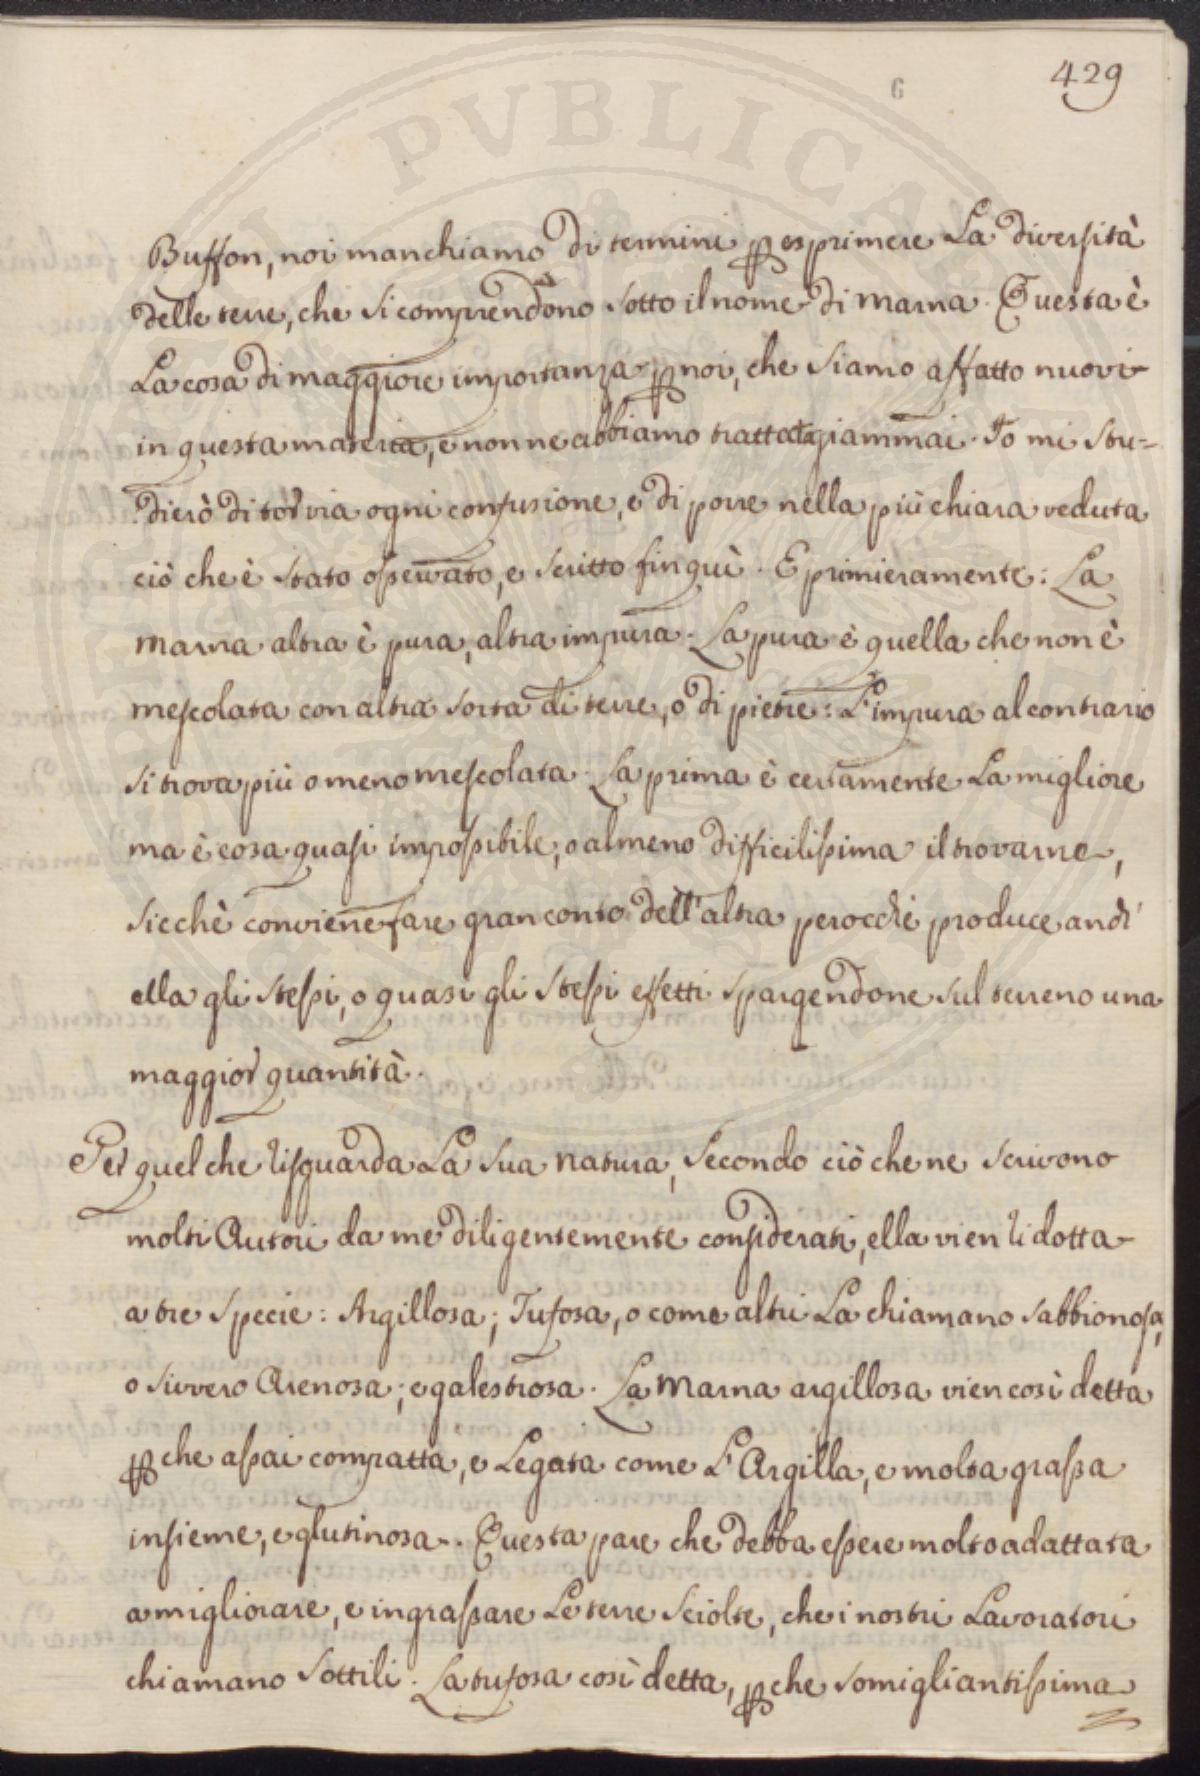 429
6
Buffon, noi manchiamo di termini p esprimere La diversità
delle terre, che si comprendono sotto il nome di marna. Questa è
La cosa di maggiore importanza p noi, che siamo affatto nuovi
in questa materia, e non ne abbiamo trattato giammai. Io mi stu=
dierò di tor via ogni confusione, e di porre nella più chiara veduta
ciò che è stato osservato, e scritto fin quì. E primieramente: La
marna altra è pura, altra impura. La pura è quella che non è
mescolata con altra sorta di terre, o di pietre: L'impura al contrario
si trova più o meno mescolata. La prima è certamente La migliore
ma è cosa quasi impossibile, o almeno difficilissima il trovarne,
sicchè conviene fare gran conto dell'altra perocchè produce anch'
ella gli stessi, o quasi gli stessi effetti spargendone sul terreno una
maggior quantità.
Per quel che risguarda La sua natura, secondo ciò che ne scrivono
molti Autori da me diligentemente considerati, ella vien ridotta
a tre specie: Argillosa; Tufosa, o come altri La chiamano sabbionosa,
o sivvero Arenosa; e galestrosa. La marna argillosa vien così detta
p che assai compatta, e Legata come L'Argilla, e molta grassa
insieme, e glutinosa. Questa pare che debba essere molto adattata
a migliorare, e ingrassare Le terre sciolte, che i nostri Lavoratori
chiamano sottili. La tufosa così detta, p che somigliantissima
PVBLICA